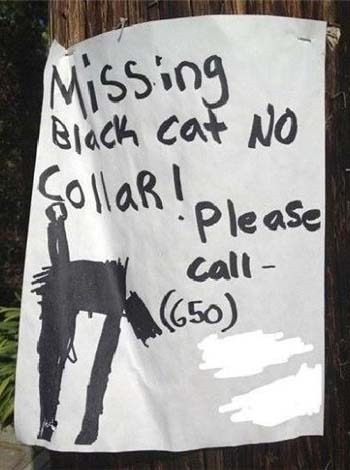 Missing
Black cat NO
CollaR!
Please
call-
(650)